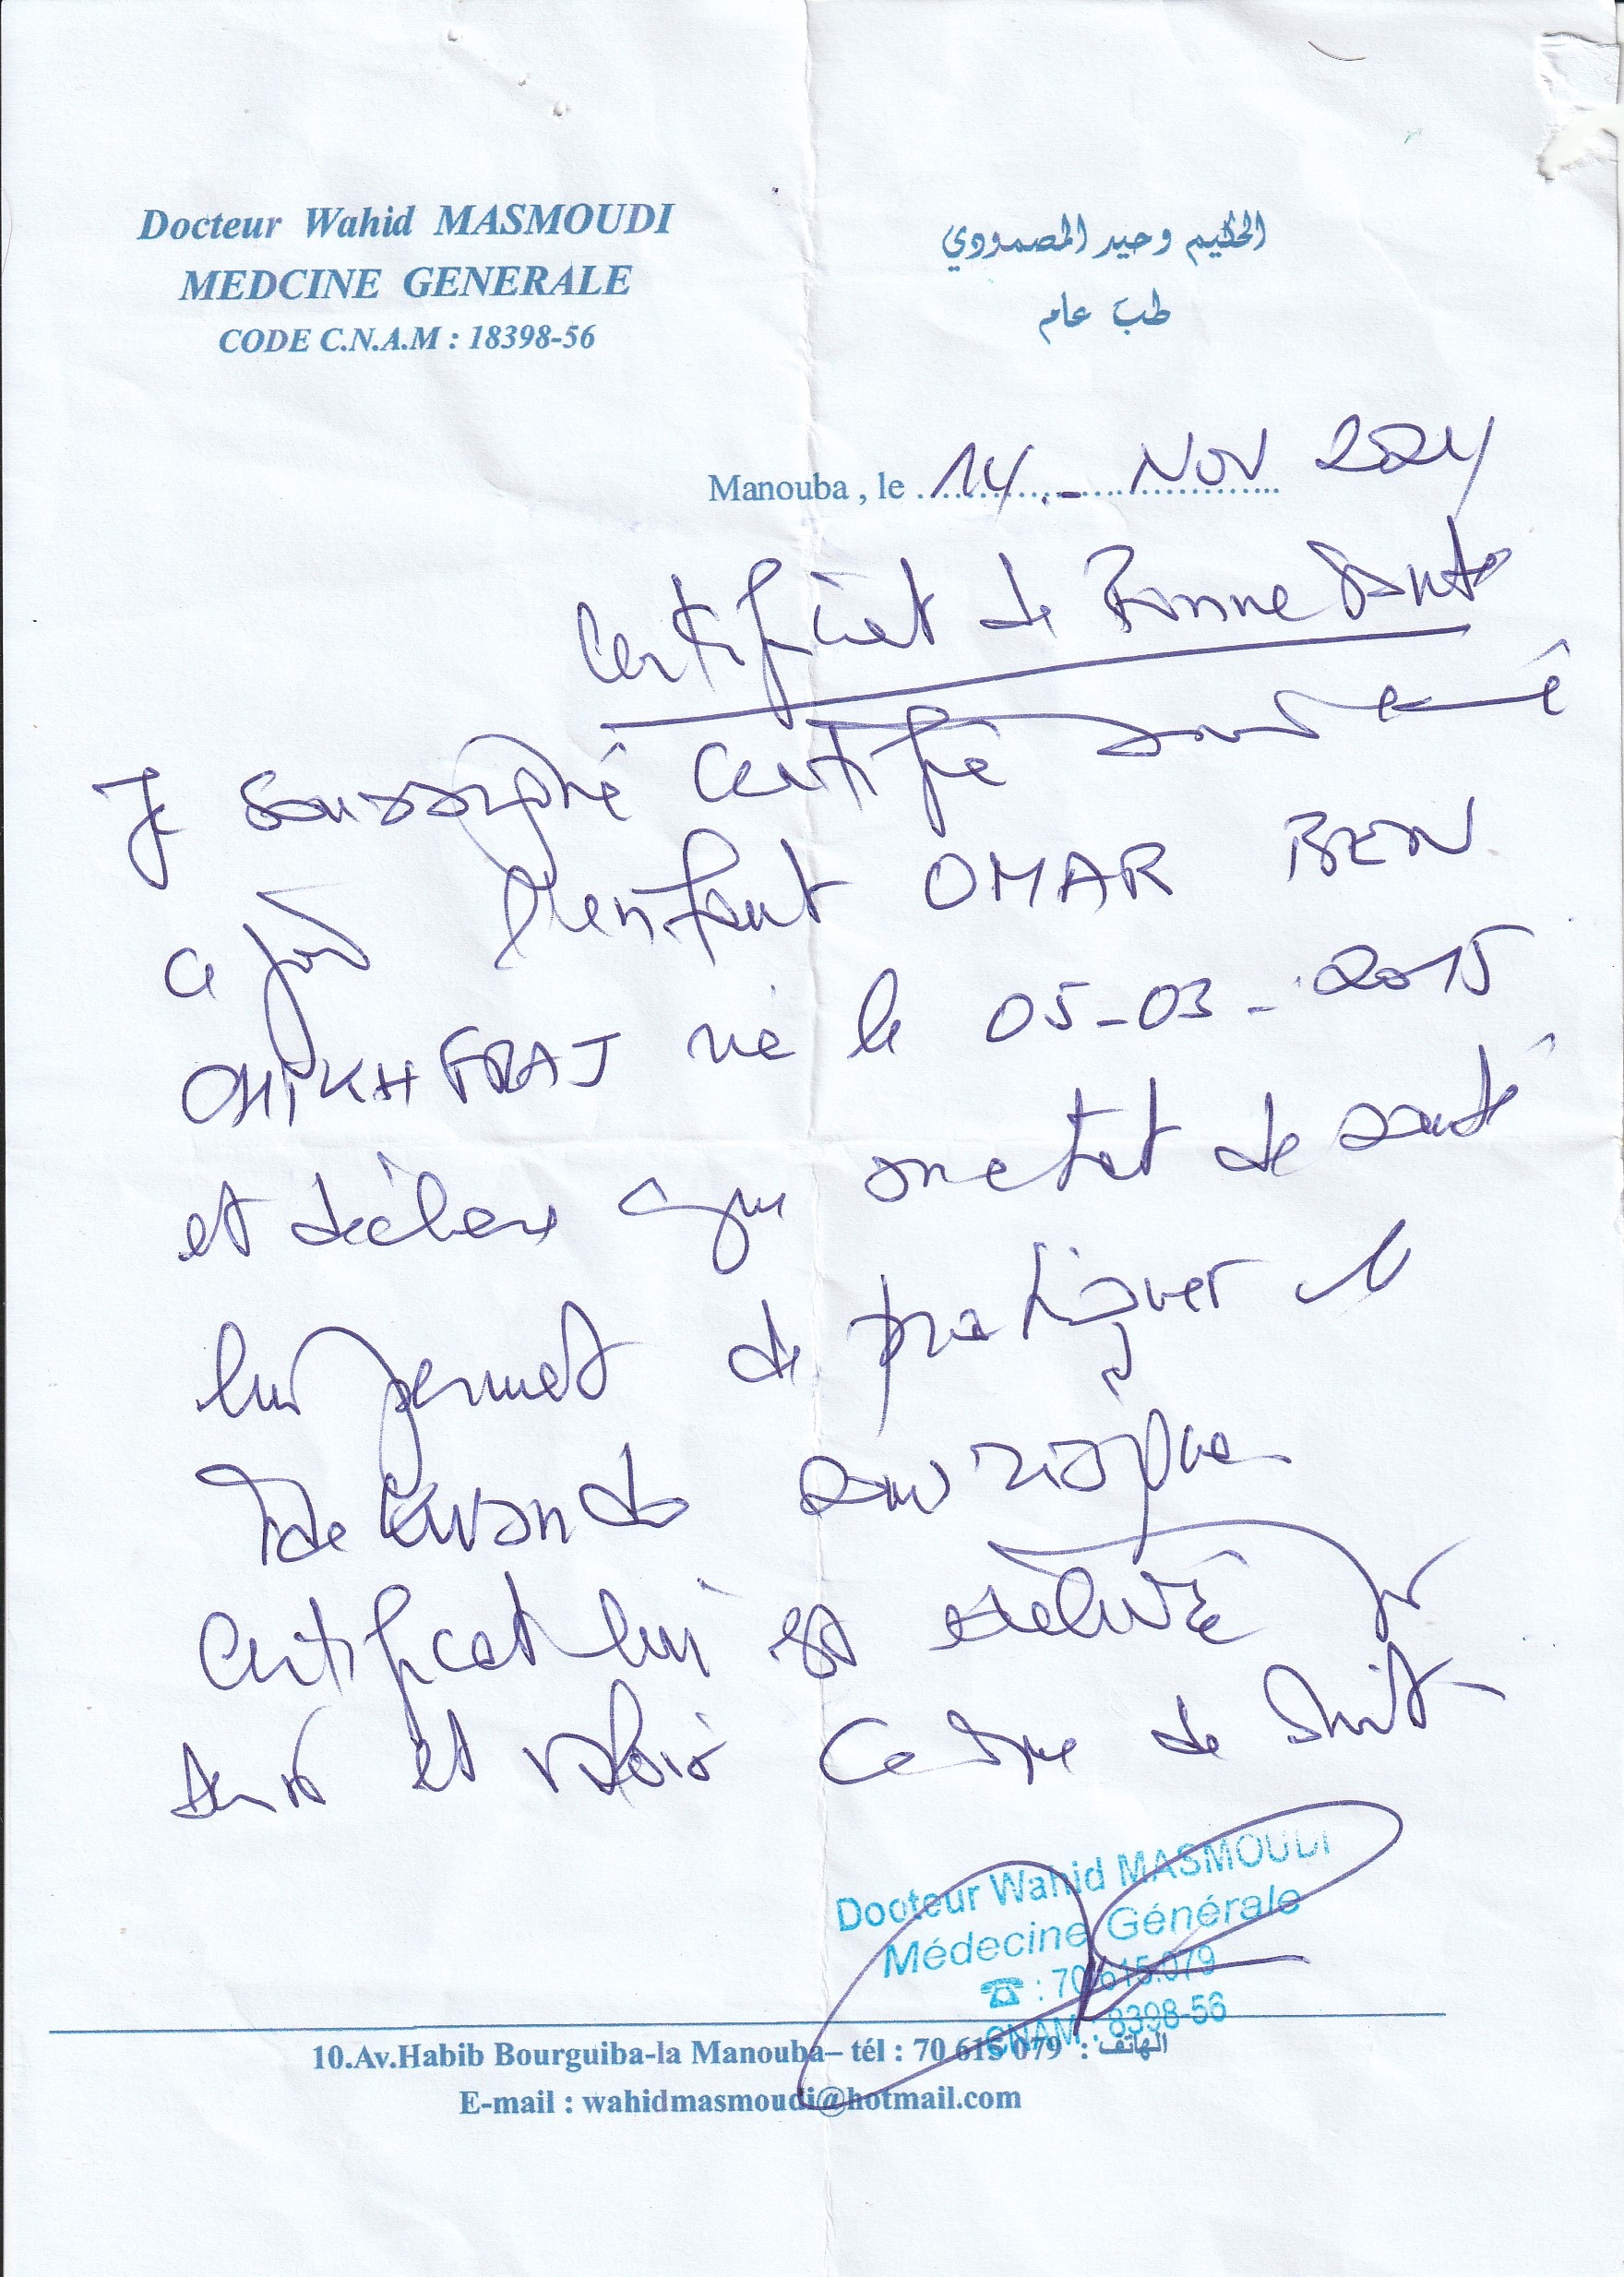 Docteur Wahid MASMOUDI
MEDCINE GENERALE
CODE C.N.A.M : 18398-56
الحكيم وحيد المصمودي
طب عام
Manouba , le 14 - NOV 2024
Certificat de Bonne Santé
Je soussigné certifie avoir examiné
ce jour l'enfant OMAR BEN
CHIKH FRAJ né le 05-03-2015
et déclare que son etat de santé
lui permet de pratiquer le
Taekwondo sans risque
Certificat lui est délivré pr
servir et valoir ce que de droit
Docteur Wahid MASMOUDI
Médecine Générale
☎ : 70 615.079
CNAM : 8398-56
10.Av.Habib Bourguiba-la Manouba– tél : 70 615 079 : الهاتف
E-mail : wahidmasmoudi@hotmail.com